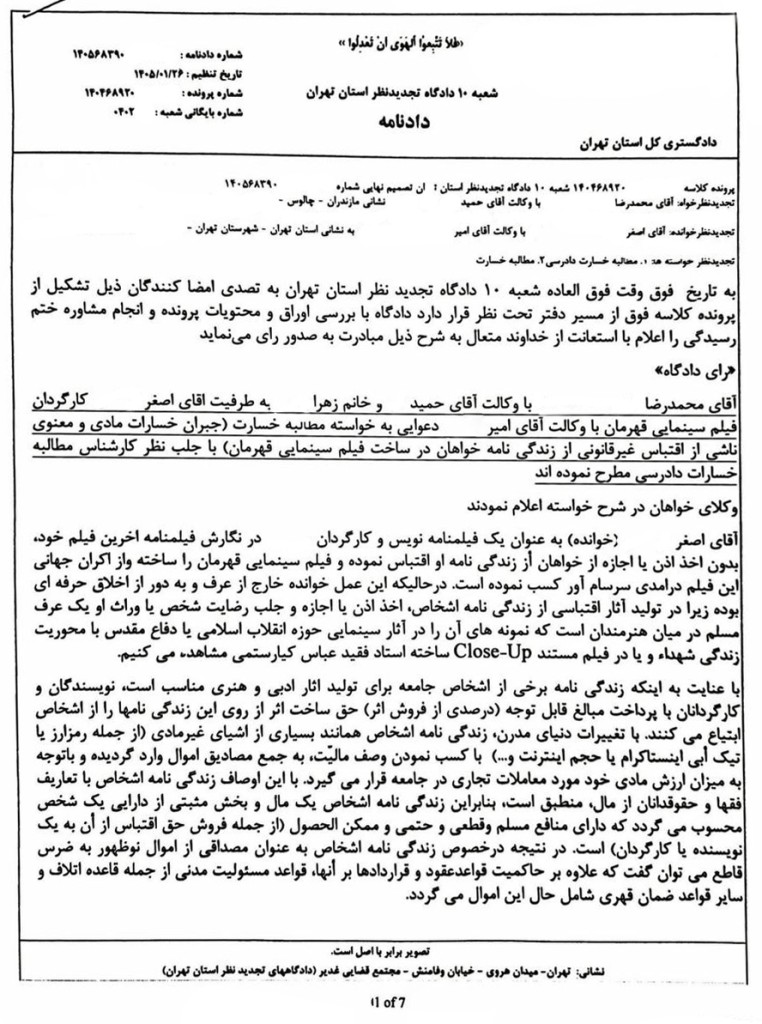 «فلا تتبعوا الهوی ان تعدلوا»
شماره دادنامه : ۱۴۰۵۶۸۳۹۰
تاریخ تنظیم : ۱۴۰۵/۰۱/۲۶
شماره پرونده : ۱۴۰۴۶۸۹۲۰
شماره بایگانی شعبه : ۰۴۰۲
شعبه ۱۰ دادگاه تجدیدنظر استان تهران
دادنامه
دادگستری کل استان تهران
پرونده کلاسه ۱۴۰۴۶۸۹۲۰ شعبه ۱۰ دادگاه تجدیدنظر استان : ان تصمیم نهایی شماره ۱۴۰۵۶۸۳۹۰
تجدیدنظرخواه: آقای محمدرضا با وکالت آقای حمید نشانی مازندران - چالوس -
تجدیدنظرخوانده: آقای اصغر با وکالت آقای امیر به نشانی استان تهران - شهرستان تهران -
تجدیدنظر خواسته ها: ۱. مطالبه خسارت دادرسی ۲. مطالبه خسارت
به تاریخ فوق وقت فوق العاده شعبه ۱۰ دادگاه تجدید نظر استان تهران به تصدی امضا کنندگان ذیل تشکیل از
پرونده کلاسه فوق از مسیر دفتر تحت نظر قرار دارد دادگاه با بررسی اوراق و محتویات پرونده و انجام مشاوره ختم
رسیدگی را اعلام با استعانت از خداوند متعال به شرح ذیل مبادرت به صدور رای می‌نماید
«رای دادگاه»
آقای محمدرضا با وکالت آقای حمید و خانم زهرا به طرفیت اقای اصغر کارگردان
فیلم سینمایی قهرمان با وکالت آقای امیر دعوایی به خواسته مطالبه خسارت (جبران خسارات مادی و معنوی
ناشی از اقتباس غیرقانونی از زندگی نامه خواهان در ساخت فیلم سینمایی قهرمان) با جلب نظر کارشناس مطالبه
خسارات دادرسی مطرح نموده اند
وکلای خواهان در شرح خواسته اعلام نمودند
آقای اصغر (خوانده) به عنوان یک فیلمنامه نویس و کارگردان در نگارش فیلمنامه اخرین فیلم خود،
بدون اخذ اذن یا اجازه از خواهان از زندگی نامه او اقتباس نموده و فیلم سینمایی قهرمان را ساخته واز اکران جهانی
این فیلم درامدی سرسام آور کسب نموده است. درحالیکه این عمل خوانده خارج از عرف و به دور از اخلاق حرفه ای
بوده زیرا در تولید آثار اقتباسی از زندگی نامه اشخاص، اخذ اذن یا اجازه و جلب رضایت شخص یا وراث او یک عرف
مسلم در میان هنرمندان است که نمونه های آن را در آثار سینمایی حوزه انقلاب اسلامی یا دفاع مقدس با محوریت
زندگی شهداء و یا در فیلم مستند Close-Up ساخته استاد فقید عباس کیارستمی مشاهده می کنیم.
با عنایت به اینکه زندگی نامه برخی از اشخاص جامعه برای تولید اثار ادبی و هنری مناسب است، نویسندگان و
کارگردانان با پرداخت مبالغ قابل توجه (درصدی از فروش اثر) حق ساخت اثر از روی این زندگی نامها را از اشخاص
ابتیاع می کنند. با تغییرات دنیای مدرن، زندگی نامه اشخاص همانند بسیاری از اشیای غیرمادی (از جمله رمزارز یا
تیک آبی اینستاگرام یا حجم اینترنت و...) با کسب نمودن وصف مالیّت، به جمع مصادیق اموال وارد گردیده و باتوجه
به میزان ارزش مادی خود مورد معاملات تجاری در جامعه قرار می گیرد. با این اوصاف زندگی نامه اشخاص با تعاریف
فقها و حقوقدانان از مال، منطبق است، بنابراین زندگی نامه اشخاص یک مال و بخش مثبتی از دارایی یک شخص
محسوب می گردد که دارای منافع مسلم وقطعی و حتمی و ممکن الحصول (از جمله فروش حق اقتباس از آن به یک
نویسنده یا کارگردان) است. در نتیجه درخصوص زندگی نامه اشخاص به عنوان مصداقی از اموال نوظهور به ضرس
قاطع می توان گفت که علاوه بر حاکمیت قواعدعقود و قراردادها بر آنها، قواعد مسئولیت مدنی از جمله قاعده اتلاف و
سایر قواعد ضمان قهری شامل حال این اموال می گردد.
تصویر برابر با اصل است.
نشانی: تهران- میدان هروی - خیابان وفامنش - مجتمع قضایی غدیر (دادگاههای تجدید نظر استان تهران)
1 of 7